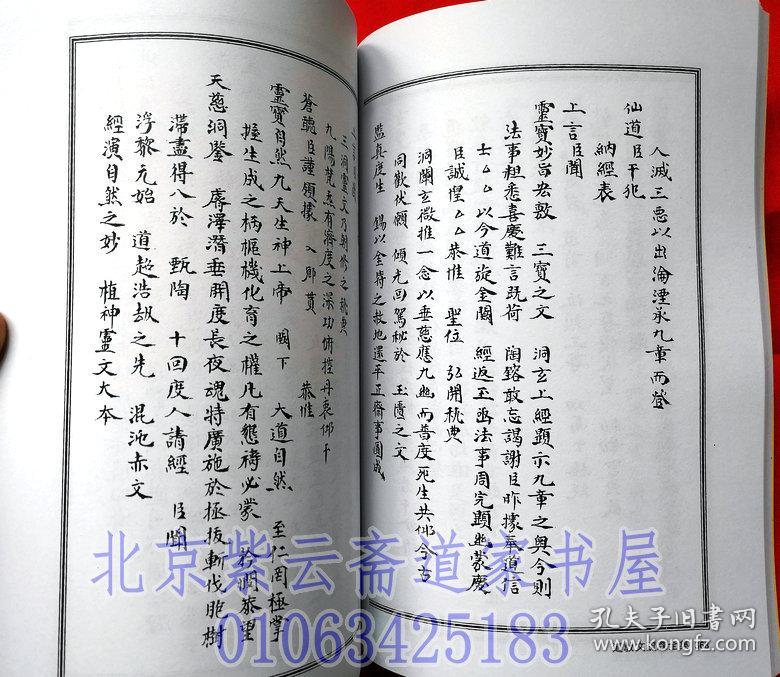 人滅三惡以出淪湮永九章而登
仙道臣干犯
納經表
上言臣聞
靈寶妙旨宏敷 三寶之文 洞玄上經顯示九章之奧今則
法事粗悉喜慶難言既荷 陶鎔敢忘謁謝臣昨據奉道信
士厶厶以今道旋金闕 經返玉函法事周完顯幽蒙慶
臣誠惶厶厶恭惟 聖位 弘開秘典
洞闡玄微推一念以垂慈應九幽而普度死生共仰今古
同歡伏願 傾光回駕秘於 玉匱之文
監真度生 錫以金符之赦地還平正齋事圓成
上言臣聞
三洞靈文乃創修之秘典
九陽梵炁有濟度之深功俯控丹衷仰干
蒼聽臣謹領據 入鄉貫 恭惟
靈寶自然九天生神上帝 闕下 大道自然 至仁罔極掌
握生成之柄樞機化育之權凡有懇禱必蒙 矜憫恭望
天慈洞鑒 廣澤潛垂開度長夜魂特廣施於極拔斬伐胞樹
滯盡得入於 甄陶 十回度人請經 臣聞
浮黎元始 道超浩劫之先 混沌赤文
經演自然之妙 植神靈文大本
北京紫云斋道家书屋
01063425183
孔夫子旧书网